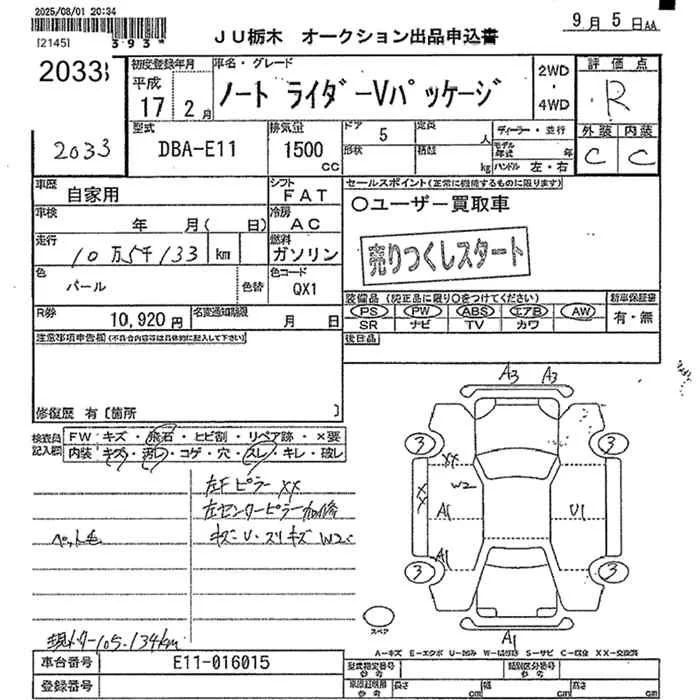 2025/08/01 20:34
9月 5日AA
[2145] 393*
JU栃木 オークション出品申込書
2033
初度登録年月
平成
17 2月
車名・グレード
ノート ライダーVパッケージ
2WD
・
4WD
評価点
R
2033
型式
DBA-E11
排気量
1500
CC
ドア 5
定員 人
ディーラー・並行
モデル年式 年
形状
積載 kg
ハンドル 左・右
外装 内装
C C
車歴
自家用
シフト
FAT
セールスポイント(正常に機能するものに限ります)
○ユーザー買取車
売りつくしスタート
車検
年 月( 日)
冷房
AC
走行
10万5千133 km
燃料
ガソリン
色
パール
色替
色コード
QX1
装備品 (純正品に限り○をつけてください)
新車保証書
PS PW ABS エアB AW
有・無
SR ナビ TV カワ
R券
10,920円
名変通知期限
月 日
後日品
注意事項申告欄(不具合内容等は具体的に記入して下さい)
修復歴 有〔箇所 〕
検査員記入欄
FW キズ・飛石・ヒビ割・リペア跡・×要
内装 キズ・汚レ・コゲ・穴・スレ・キレ・破レ
左Fピラー XX
左センターピラー加修
ペット毛
キズ・U・スリキズ W2
現メーター105.134km
A3 A3
3 3
XX
W2
XX
A1 U1
A1
3 3
A1
スペア
A-キズ E-エクボ U-凹み W-補修跡 S-サビ C-腐食 XX-交換済
車台番号
E11-016015
登録番号
型式指定番号 参考
類別区分番号 参考
車検証規格 参考
長さ cm
幅 cm
高さ cm